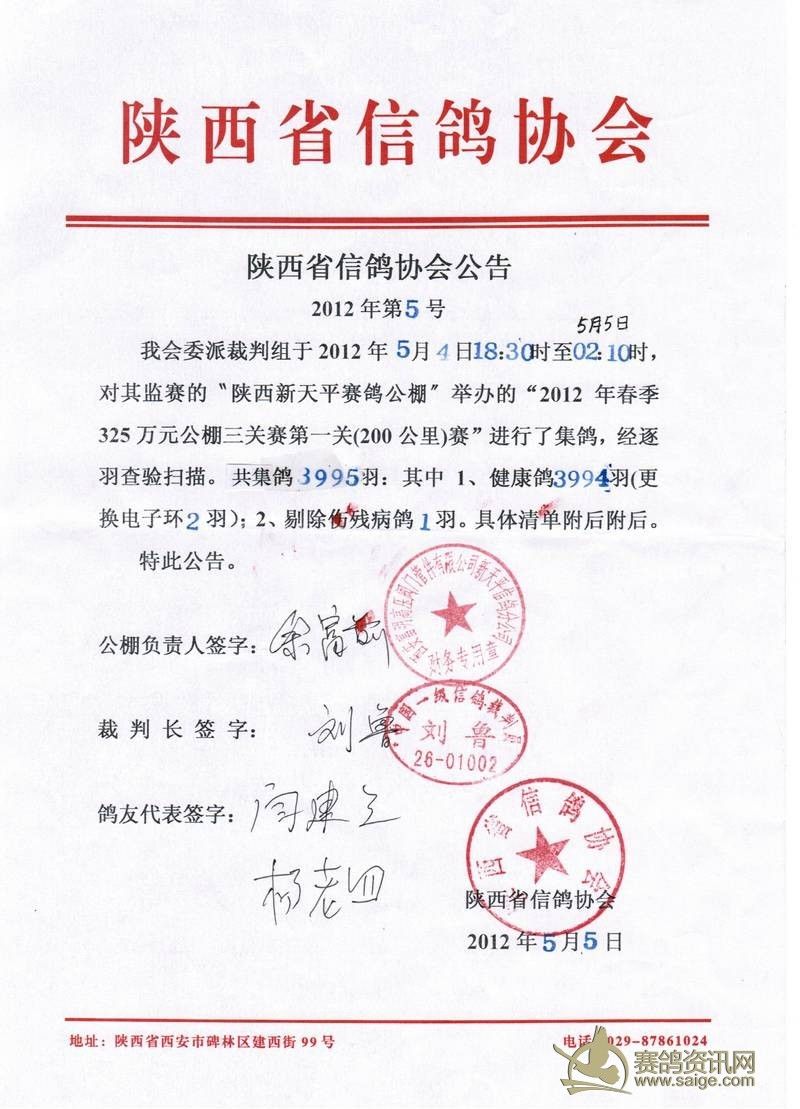 陕西省信鸽协会
陕西省信鸽协会公告
2012年第5号
5月5日
我会委派裁判组于2012年5月4日18:30时至02:10时，
对其监赛的“陕西新天平赛鸽公棚”举办的“2012 年春季
325万元公棚三关赛第一关(200公里)赛”进行了集鸽，经逐
羽查验扫描。共集鸽3995羽：其中 1、健康鸽3994羽(更
换电子环2羽)；2、剔除伤残病鸽1羽。具体清单附后附后。
特此公告。
公棚负责人签字：
财务专用章
裁 判 长 签 字： 刘鲁
一级信鸽裁判员
刘鲁
26-01002
鸽友代表签字：闫建立
杨老四
西省信鸽协会
陕西省信鸽协会
2012年5月5日
地址：陕西省西安市碑林区建西街99号
电话 029-87861024
赛鸽资讯网
www.saige.com